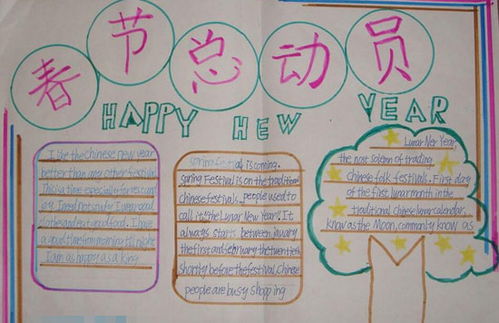 春节总动员
HAPPY HEW YEAR
I like the chinese new year
better than any other festival
This is a time especially for rest and
joy. I need not study. I wear good
clothes and eat good food. I have
a good time from morning till night
I am as happy as a king
Spring festival is coming.
Spring Festival is on the traditional
chinese festivals. people used to
call it "the Lunar New Year". It
always starts between January
the first and February the twentieth
shortly before the festival, Chinese
people are busy shopping
Lunar Ner Year,
the most solemn of trading
Chinese folk festivals. First day
of the first lunar month in the
traditional chinese lunar calendar.
know as the Moon, commonly know as